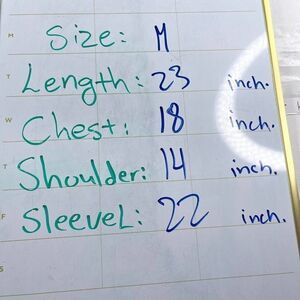 M Size: M
T Length: 23 inch.
W Chest: 18 inch.
T Shoulder: 14 inch.
F SleeveL: 22 inch.
S